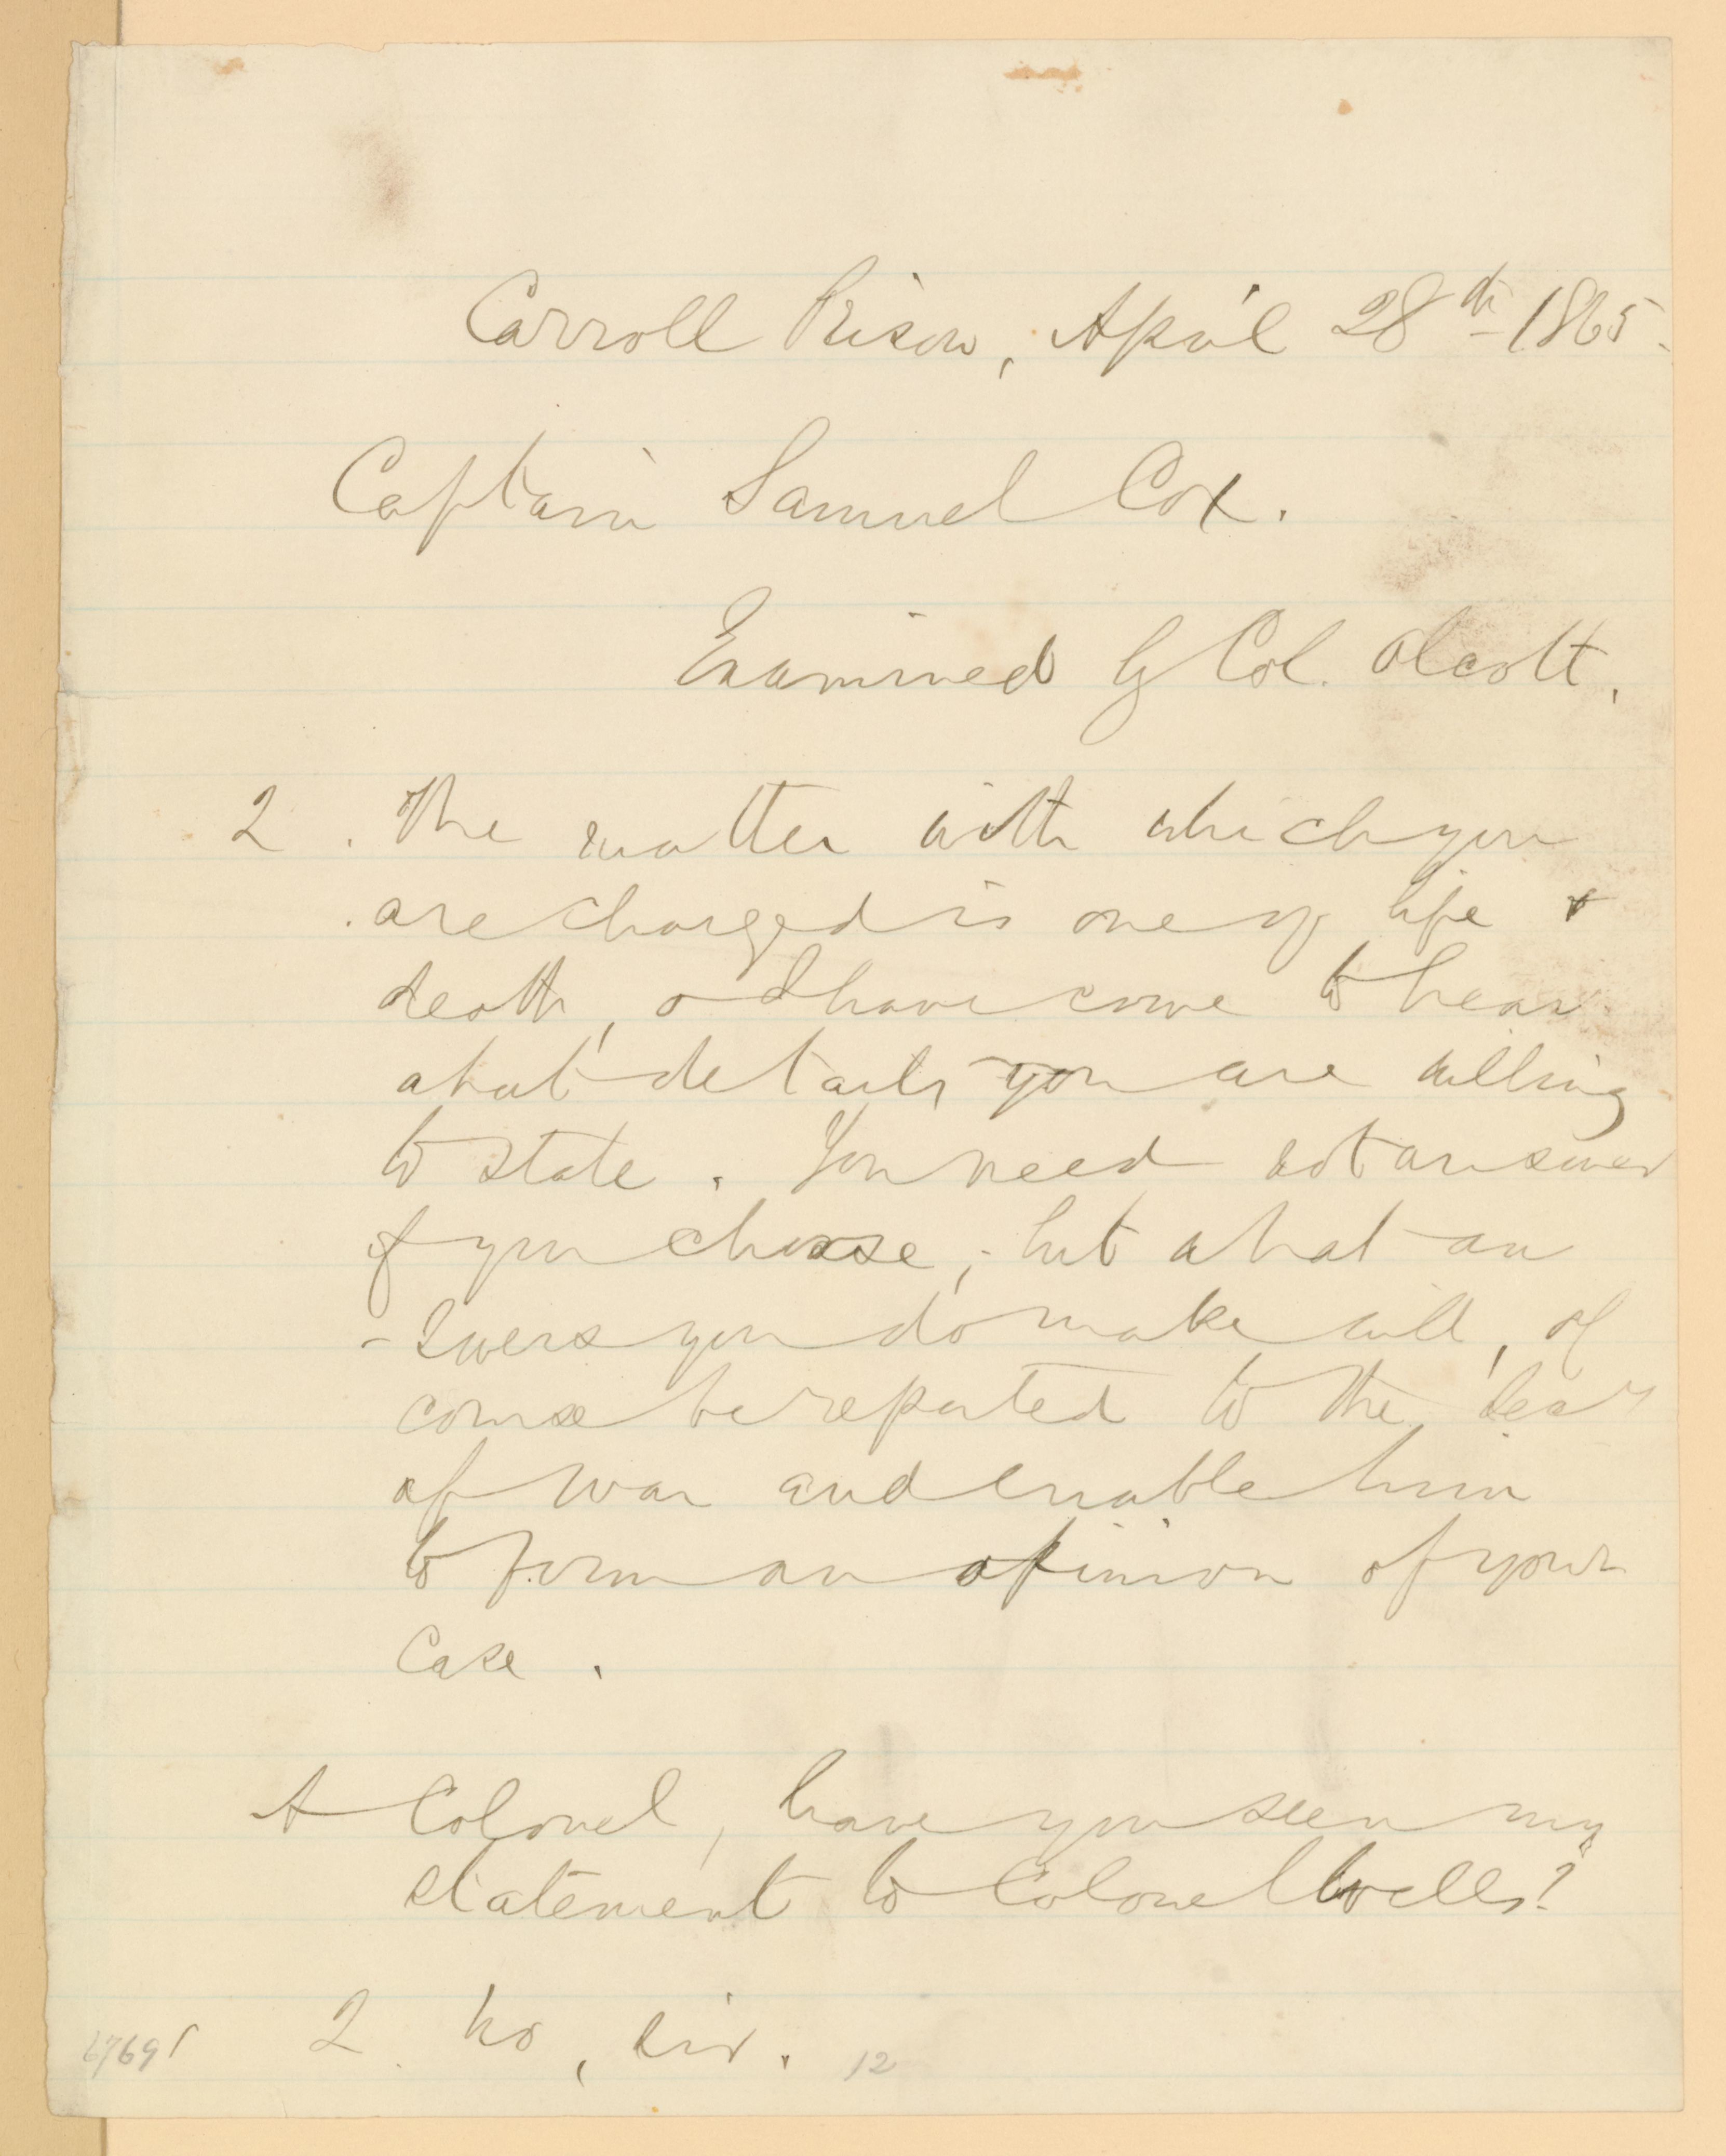 Carroll Prison, April 28th 1865.
Captain Samuel Cox.
Examined by Col. Olcott.
Q. The matter with which you
are charged is one of life &
death, & I have come to hear
what details you are willing
to state. You need not answer
if you choose; but what an
-swers you do make will, of
course be reported to the Secy
of War and enable him
to form an opinion of your
case.
A Colonel, have you seen my
statement to Colonel Wells?
Q. No, sir.
12